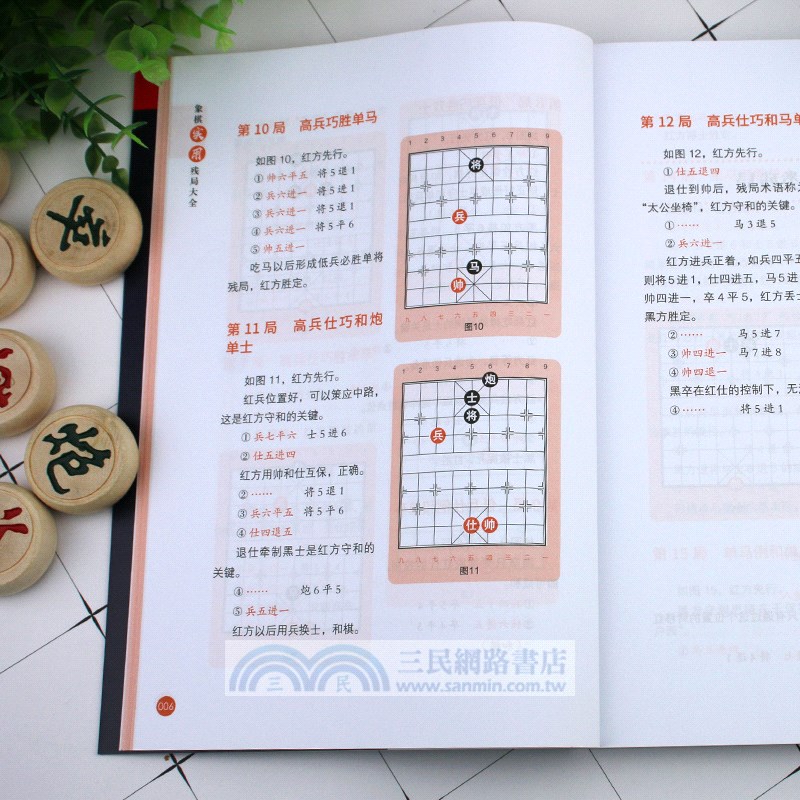 象棋
残局大全
第 10 局 高兵巧胜单马
如图 10，红方先行。
① 帅六平五 将 5 退 1
② 兵六进一 将 5 退 1
③ 兵六进一 将 5 退 1
④ 兵六进一 将 5 平 6
⑤ 帅五进一
吃马以后形成低兵必胜单将
残局，红方胜定。
第 11 局 高兵仕巧和炮
单士
如图 11，红方先行。
红兵位置好，可以策应中路，
这是红方守和的关键。
① 兵七平六 士 5 进 6
② 仕五进四
红方用帅和仕互保，正确。
② …… 将 5 退 1
③ 兵六平五 将 5 平 6
④ 仕四退五
退仕牵制黑士是红方守和的
关键。
④ …… 炮 6 平 5
⑤ 兵五进一
红方以后用兵换士，和棋。
006
1 2 3 4 5 6 7 8 9
将
兵
马
帅
九 八 七 六 五 四 三 二 一
图10
1 2 3 4 5 6 7 8 9
炮
士
将
兵
仕 帅
九 八 七 六 五 四 三 二 一
图11
第 12 局 高兵仕巧和马单
如图 12，红方先行。
① 仕五退四
退仕到帅后，残局术语称
“太公坐椅”，红方守和的关键。
① …… 马 3 退 5
② 兵六进一
红方进兵正着，如兵四平五
则将 5 进 1，仕四进五，马 5 进
帅四进一，卒 4 平 5，红方丢士
黑方胜定。
② …… 马 5 进 7
③ 帅四进一 马 7 进 8
④ 帅四退一
黑卒在红仕的控制下，无
④ …… 将 5 进 1
三民
三民網路書店
www.sanmin.com.tw
炮